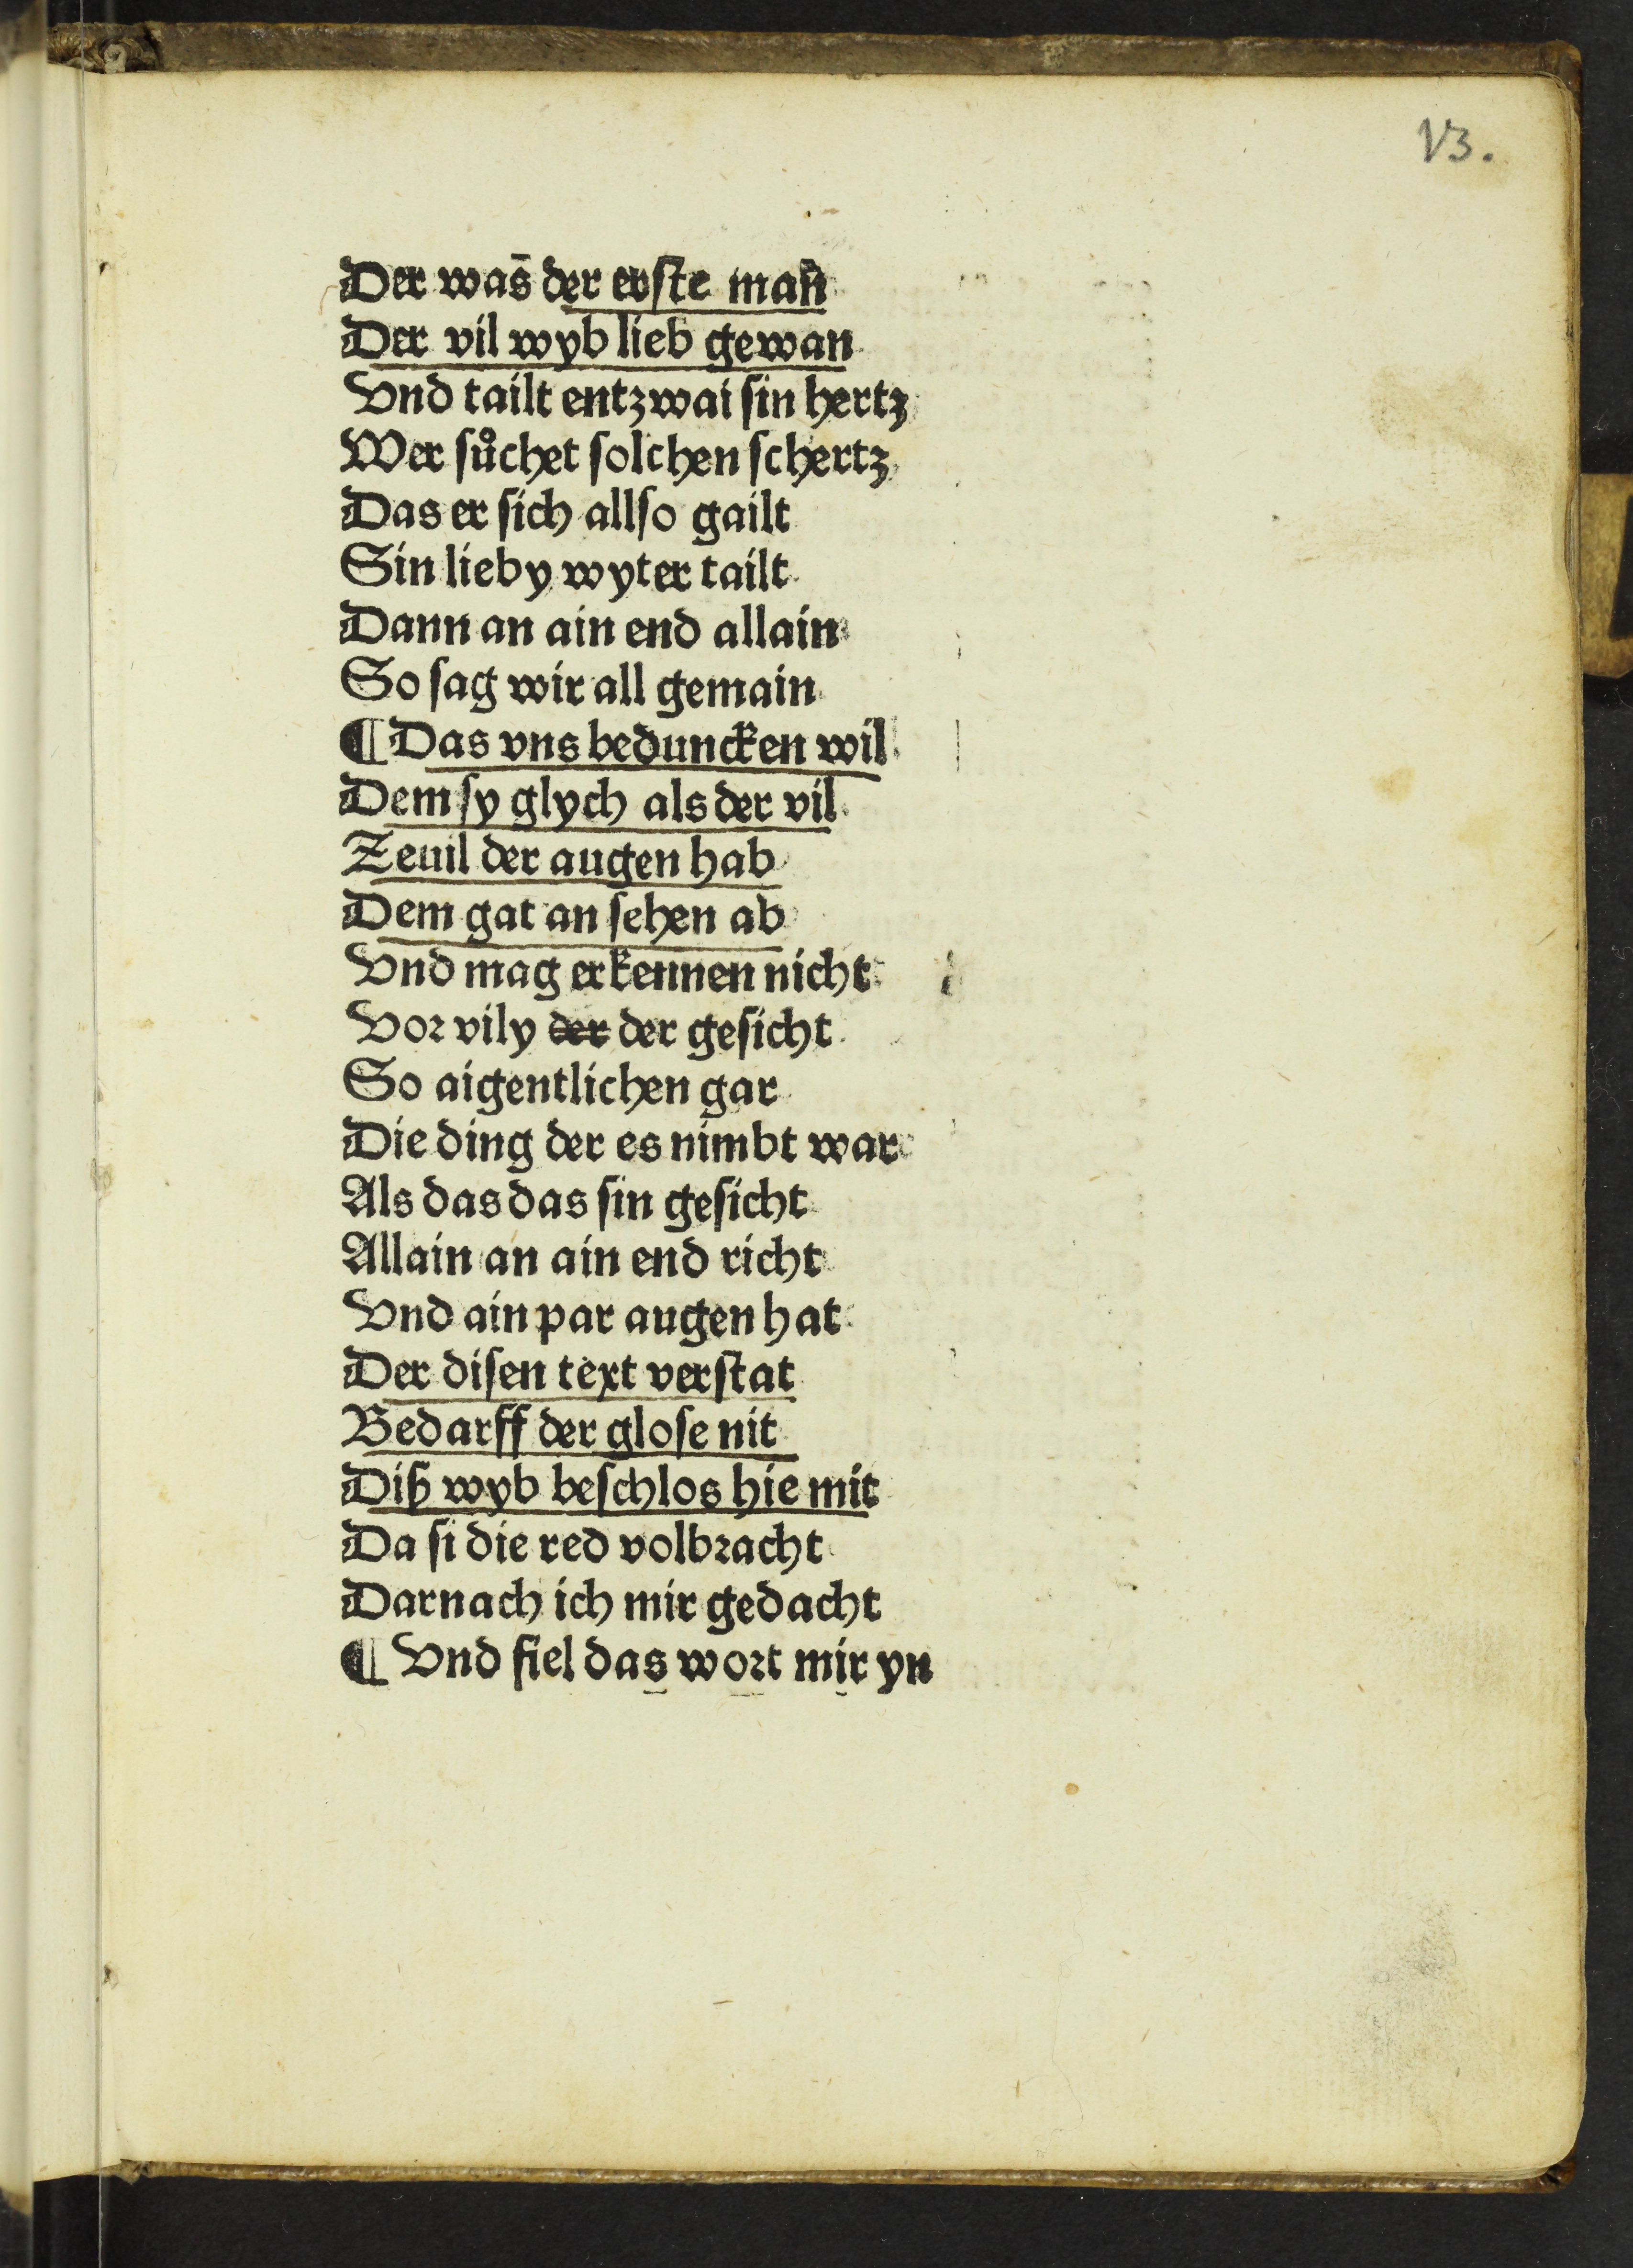 V3.
Der was̄ der erste mañ
Der vil wyb lieb gewan
Vnd tailt entzwai sin hertz
Wer sůchet solchen schertz
Das er sich allso gailt
Sin lieby wyter tailt
Dann an ain end allain
So sag wir all gemain
¶ Das vns beduncken wil
Dem sy glych als der vil
Zeuil der augen hab
Dem gat an sehen ab
Vnd mag erkennen nicht
Vor vily der der gesicht
So aigentlichen gar
Die ding der es nimbt war
Als das das sin gesicht
Allain an ain end richt
Vnd ain par augen hat
Der disen text verstat
Bedarff der glose nit
Diß wyb beschlos hie mit
Da si die red volbracht
Darnach ich mir gedacht
¶ Vnd fiel das wort mir yn